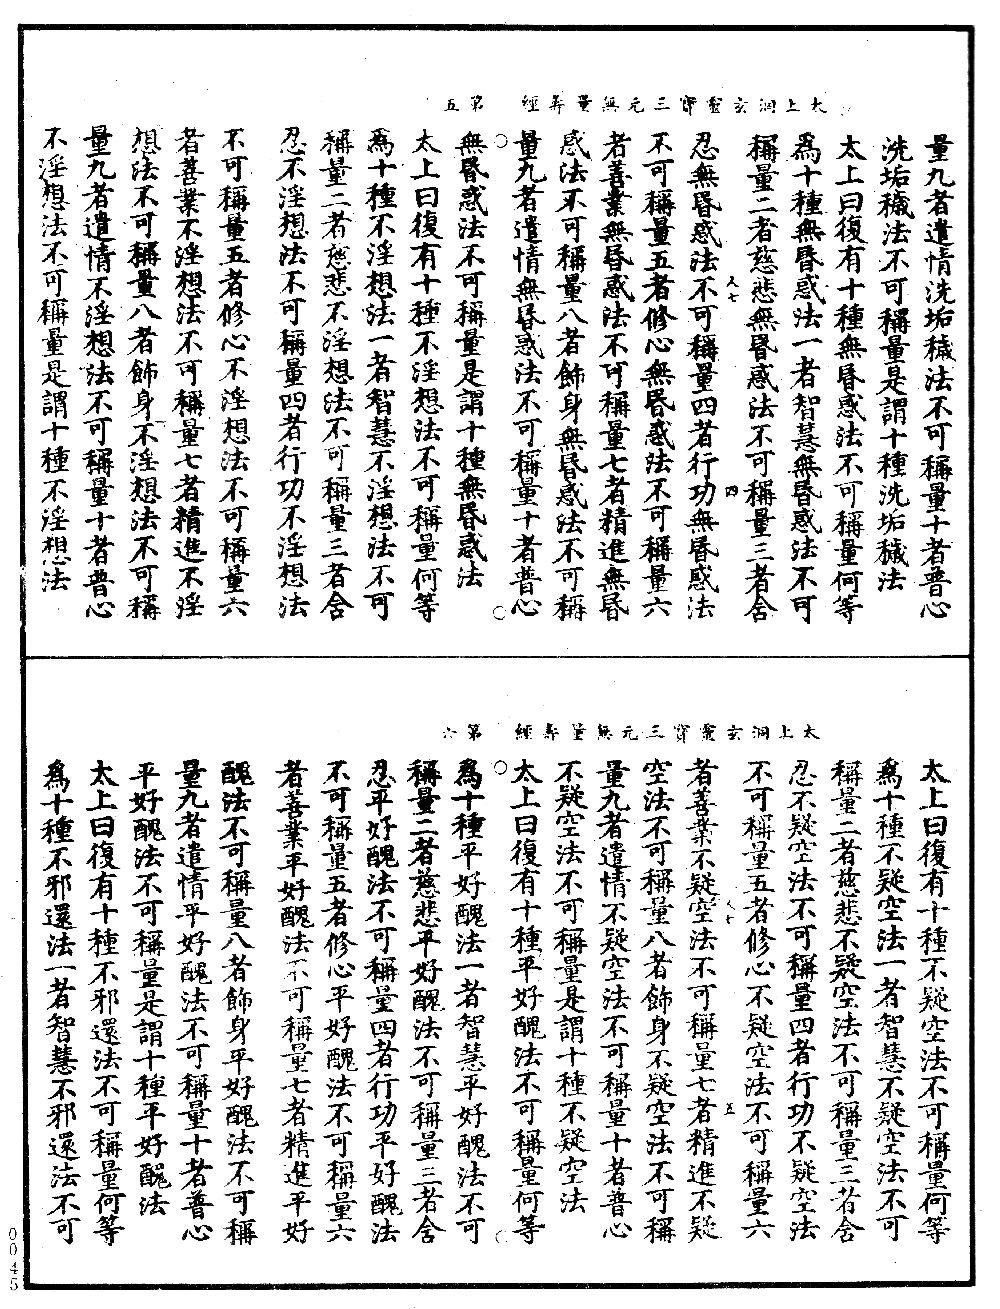 太上洞玄靈寶三元無量壽經　第五
量九者遣情洗垢穢法不可稱量十者普心
洗垢穢法不可稱量是謂十種洗垢穢法
太上曰復有十種無昏惑法不可稱量何等
爲十種無昏惑法一者智慧無昏惑法不可
稱量二者慈悲無昏惑法不可稱量三者含
人七　四
忍無昏惑法不可稱量四者行功無昏惑法
不可稱量五者修心無昏惑法不可稱量六
者善業無昏惑法不可稱量七者精進無昏
惑法不可稱量八者飾身無昏惑法不可稱
量九者遣情無昏惑法不可稱量十者普心
無昏惑法不可稱量是謂十種無昏惑法
太上曰復有十種不淫想法不可稱量何等
爲十種不淫想法一者智慧不淫想法不可
稱量二者慈悲不淫想法不可稱量三者含
忍不淫想法不可稱量四者行功不淫想法
不可稱量五者修心不淫想法不可稱量六
者善業不淫想法不可稱量七者精進不淫
想法不可稱量八者飾身不淫想法不可稱
量九者遣情不淫想法不可稱量十者普心
不淫想法不可稱量是謂十種不淫想法
太上洞玄靈寶三元無量壽經　第六
太上曰復有十種不疑空法不可稱量何等
爲十種不疑空法一者智慧不疑空法不可
稱量二者慈悲不疑空法不可稱量三者含
忍不疑空法不可稱量四者行功不疑空法
不可稱量五者修心不疑空法不可稱量六
人七　五
者善業不疑空法不可稱量七者精進不疑
空法不可稱量八者飾身不疑空法不可稱
量九者遣情不疑空法不可稱量十者普心
不疑空法不可稱量是謂十種不疑空法
太上曰復有十種平好醜法不可稱量何等
爲十種平好醜法一者智慧平好醜法不可
稱量二者慈悲平好醜法不可稱量三者含
忍平好醜法不可稱量四者行功平好醜法
不可稱量五者修心平好醜法不可稱量六
者善業平好醜法不可稱量七者精進平好
醜法不可稱量八者飾身平好醜法不可稱
量九者遣情平好醜法不可稱量十者普心
平好醜法不可稱量是謂十種平好醜法
太上曰復有十種不邪還法不可稱量何等
爲十種不邪還法一者智慧不邪還法不可
0045